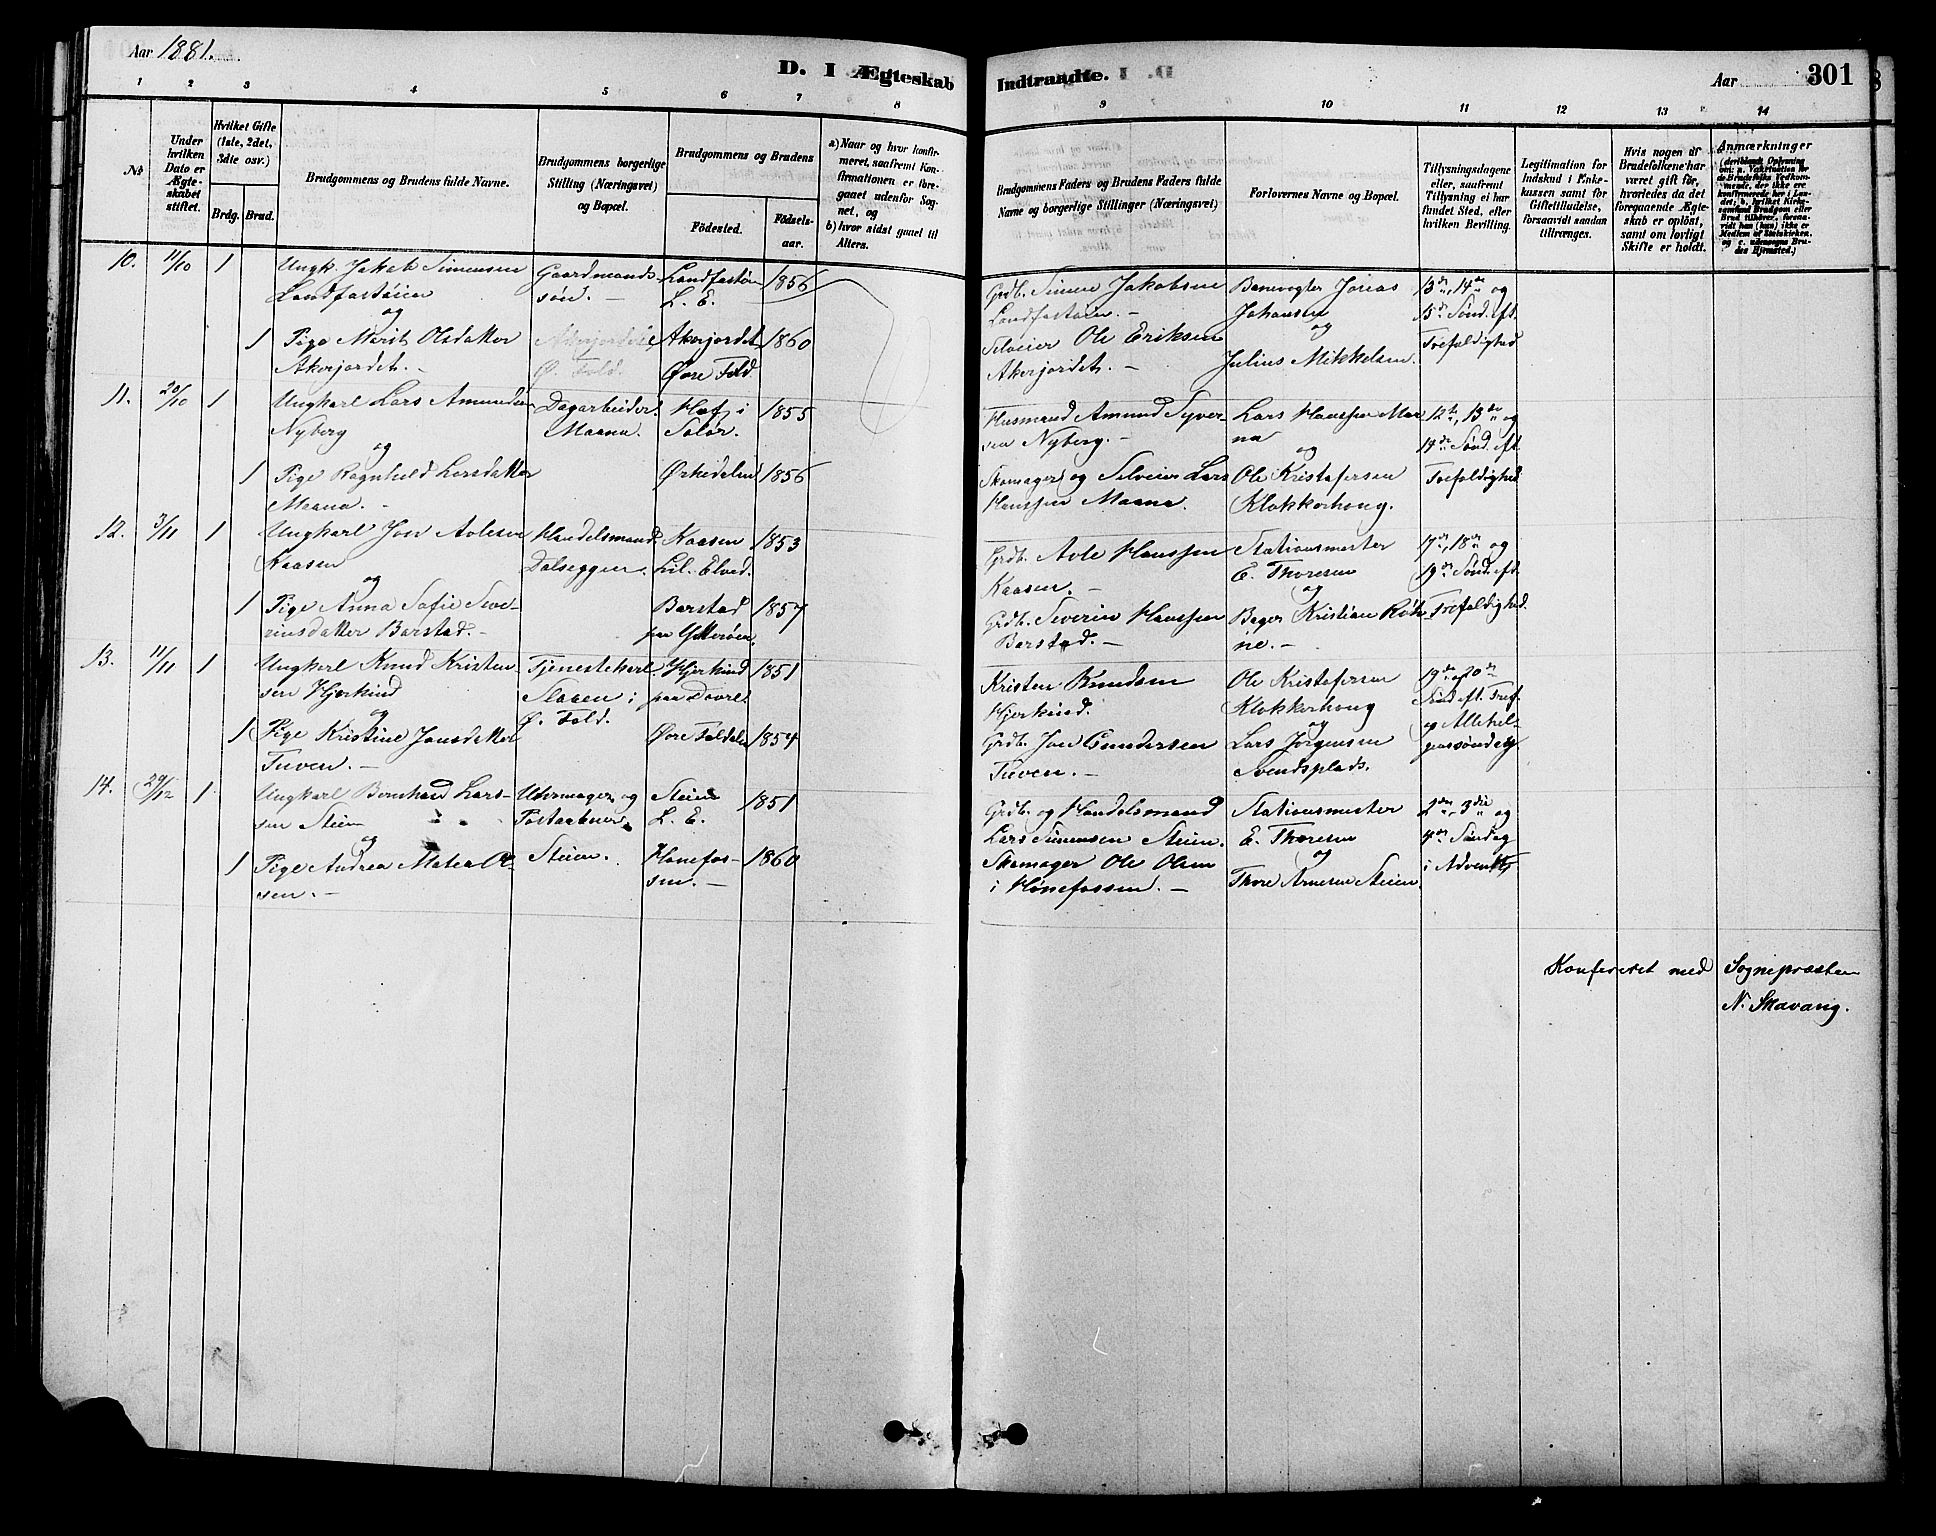 Aar 1881.
D. I Ægteskab
Indtraadte.
Aar
301
1 2 3 4 5 6 7 8 9 10 11 12 13 14
№
Under hvilken Dato er Ægteskabet stiftet.
Hvilket Gifte (1ste, 2det, 3die osv.)
Brdg. Brud.
Brudgommens og Brudens fulde Navne.
Brudgommens borgerlige Stilling (Næringsvei) og Bopæl.
Brudgommens og Brudens
Fødested.
Fødselsaar.
a) Naar og hvor konfirmeret, saafremt Konfirmationen er foregaaet udenfor Sognet, og
b) hvor sidst gaaet til Alters.
Brudgommens Faders og Brudens Faders fulde Navne og borgerlige Stillinger (Næringsvei)
Forlovernes Navne og Bopæl.
Tillysningsdagene eller, saafremt Tillysning ei har fundet Sted, efter hvilken Bevilling.
Legitimation for Indskud i Enkekassen samt for Giftetilladelse, forsaavidt saadan tiltrænges.
Hvis nogen af Brudefolkene har været gift før, hvorledes da det foregaaende Ægteskab er opløst, samt om lovligt Skifte er holdt.
Anmærkninger
10. 11/10 1
Ungk. Jakob Simensen
Landfastøien
og
1 Pige Marit Olsdatter
Akerjordet. -
Gaardmands
søn. -
Akerjordet,
Ø. Fold.
Landfastøien
L. E.
1856
Akerjordet
Øvre Fold.
1860
Grdb. Simen Jakobsen
Landfastøien. -
Selveier Ole Eriksen
Akerjordet. -
Banevogter Jonas
Johansen
og
Julius Mikkelsen.
13de, 14de og
15de Sønd. eft.
Trefoldighed
11. 20/10 1
Ungkarl Lars Amundsen
Nyberg
og
1 Pige Ragnhild Larsdatter
Maana. -
Dagarbeider.
Maana.
Hof i
Solør.
1855
Ørkedalen
1856
Husmand Amund Syversen
Nyberg. -
Skomager og Selveier Lars
Hanssen Maana.
Lars Hanssen Maana
og
Ole Kristofersen
Klokkerhoug.
12te, 13de og
14de Sønd. eft.
Trefoldighed
12. 3/11 1
Ungkarl Jon Avlesen
Kaasen
og
1 Pige Anna Sofie Severinsdatter
Barstad. -
Handelsmand.
Dalseggen.
Kaasen
Lil. Elved.
1853
Barstad
paa Ytterøen.
1857
Grdb. Avle Hanssen
Kaasen. -
Grdb. Severin Hanssen
Barstad. -
Stationsmester
E. Thoresen
og
Bager Kristian Røhne. -
17de, 18de og
19de Sønd. eft.
Trefoldighed.
13. 11/11 1
Ungkarl Knud Kristensen
Hjerkind
og
1 Pige Kristine Jonsdatter
Tuven. -
Tjenestekarl.
Slaaen i
Ø. Fold.
Hjerkind
paa Dovre.
1851
Øvre Foldalen
1854
Kristen Knudsen
Hjerkind.
Grdb. Jon Gundersen
Tuven. -
Ole Kristofersen
Klokkerhoug
og
Lars Jørgensen
Svendsplads.
19de, 20de
Sønd. eft. Tref.
og Allehelgenssøndag.
14. 29/12 1
Ungkarl Bernhard Larssen
Steien
og
1 Pige Andrea Matea Olsen. -
Uhrmager og
Postaabner,
Steien.
Steien
L. E.
1851
Hønefossen. -
1860
Grdb. og Handelsmand
Lars Simensen Steien.
Skomager Ole Olsen
i Hønefossen. -
Stationsmester
E. Thoresen
og
Thore Arnesen Steien
2den, 3die og
4de Søndag
i Advent.
Konfereret med Sognepræsten
N. Skavang.